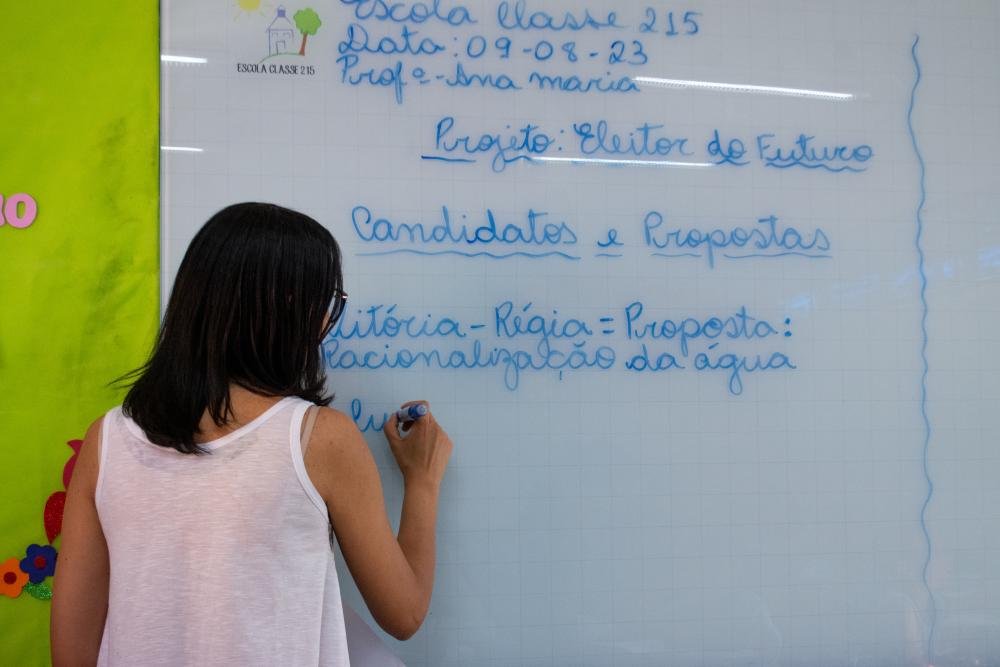 Escola Classe 215
Data: 09-08-23
Profª-Ana maria
ESCOLA CLASSE 215
Projeto: Eleitor do Futuro
Candidatos e Propostas
Régia = Proposta:
Racionalização da água